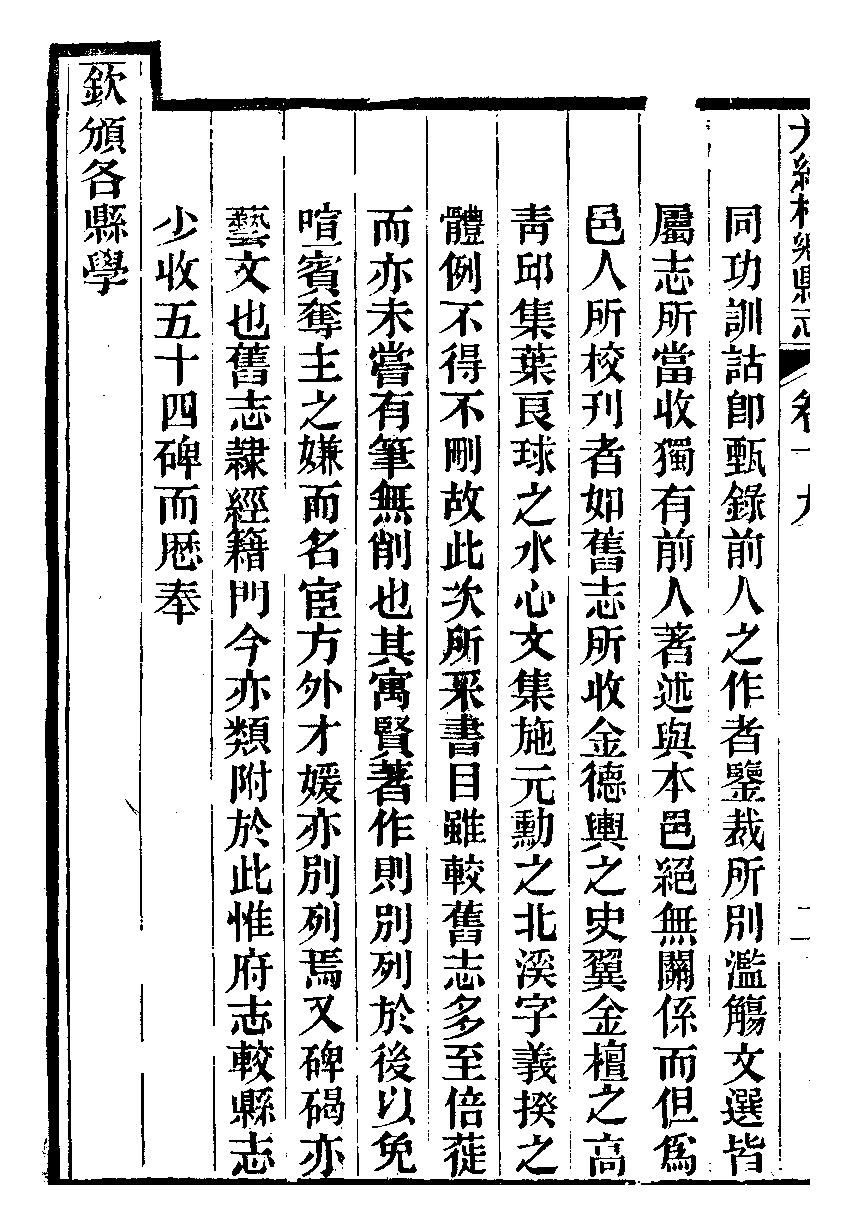 光緒桐鄉縣志 卷十九 二
同功訓詁卽甄錄前人之作者鑒裁所別濫觴文選皆
屬志所當收獨有前人著述與本邑絕無關係而但爲
邑人所校刊者如舊志所收金德輿之史翼金檀之高
靑邱集葉良球之水心文集施元勳之北溪字義揆之
體例不得不刪故此次所采書目雖較舊志多至倍蓰
而亦未嘗有筆無削也其寓賢著作則別列於後以免
喧賓奪主之嫌而名宦方外才媛亦別列焉又碑碣亦
藝文也舊志隷經籍門今亦類附於此惟府志較縣志
少收五十四碑而恩奉
欽頒各縣學